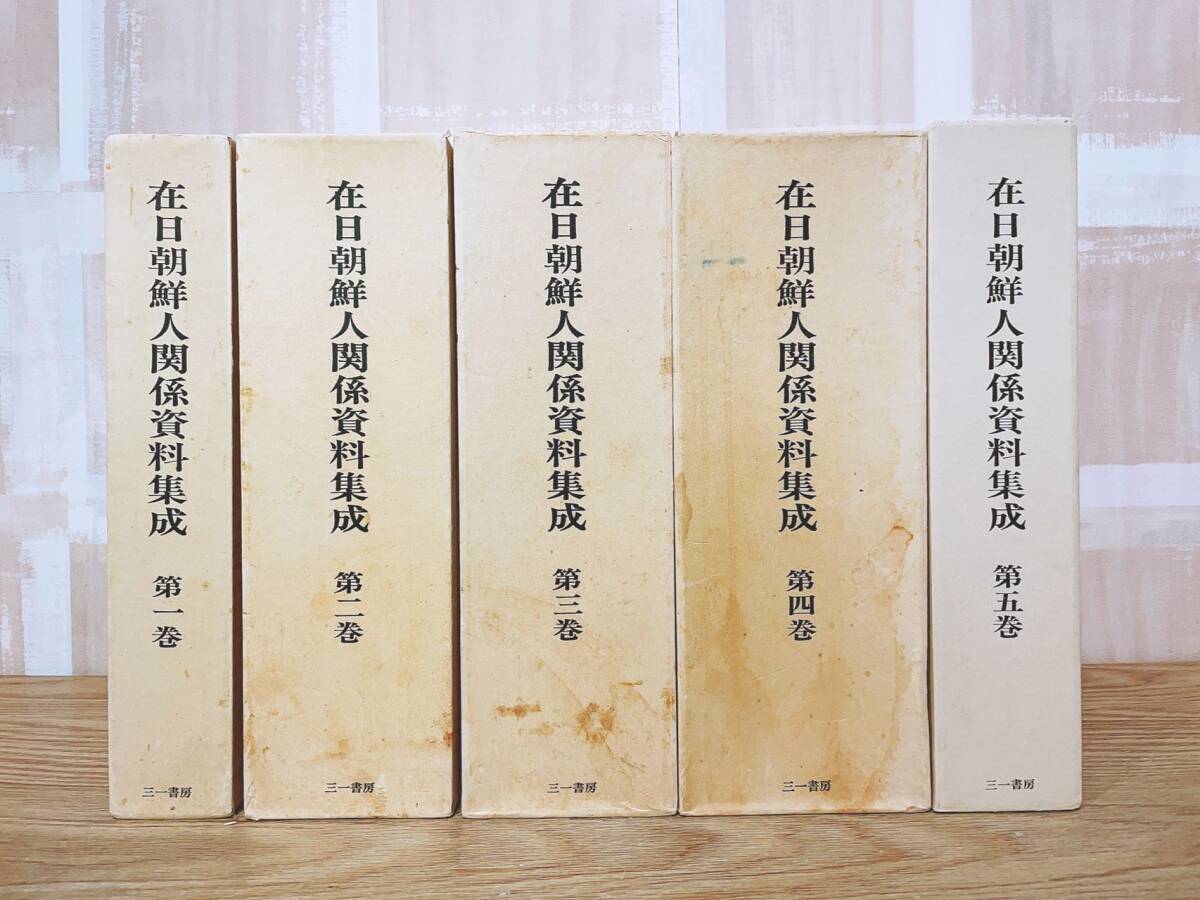 在日朝鮮人関係資料集成 第一巻
三一書房
在日朝鮮人関係資料集成 第二巻
三一書房
在日朝鮮人関係資料集成 第三巻
三一書房
在日朝鮮人関係資料集成 第四巻
三一書房
在日朝鮮人関係資料集成 第五巻
三一書房